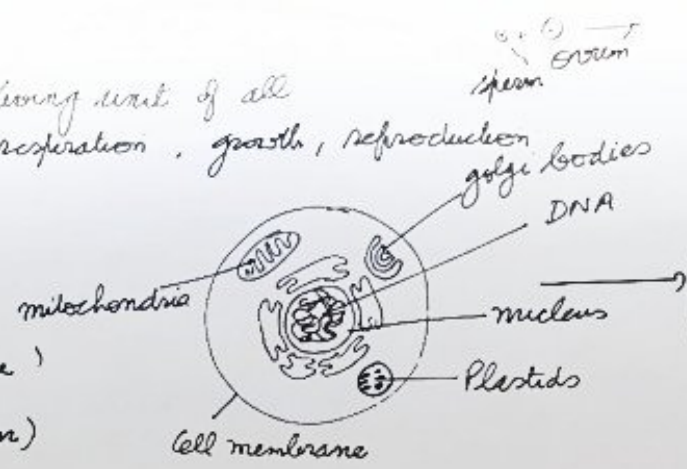 sperm ovum
living unit of all
respiration, growth, reproduction
golgi bodies
DNA
mitochondria
nucleus
Plastids
Cell membrane